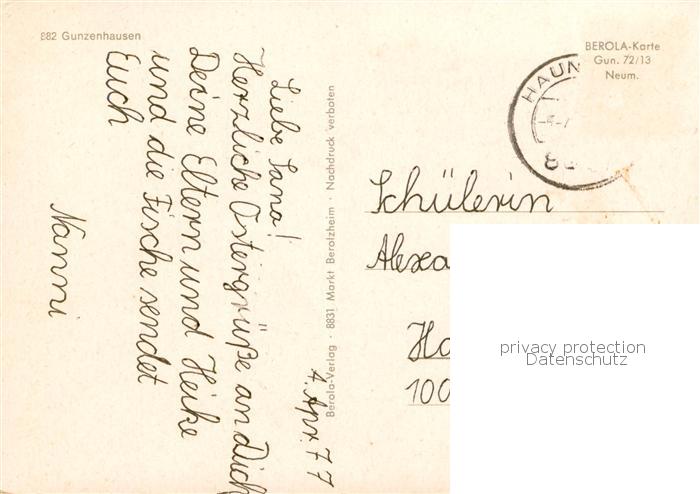 882 Gunzenhausen
Liebe Jana!
Herzliche Ostergrüße an Dich
Deine Eltern und Heike
und die Fische sendet
Euch
Nanni
4. Apr. 77
Berola-Verlag · 8831 Markt Berolzheim · Nachdruck verboten
BEROLA-Karte
Gun. 72/13
Neum.
HAUN
Schülerin
Alexa
Ho
100
privacy protection
Datenschutz